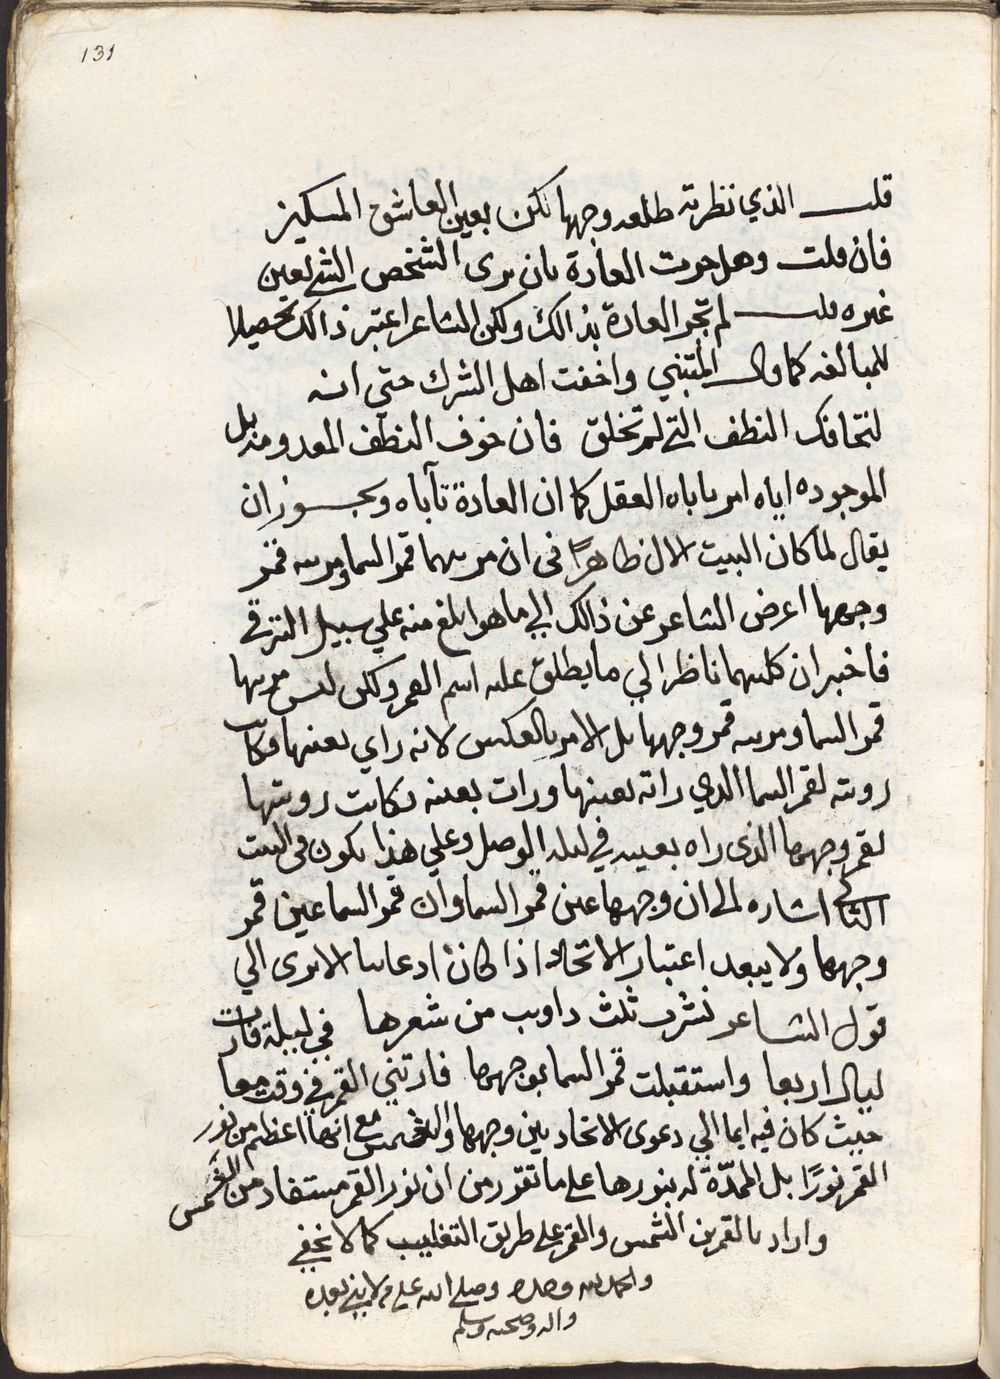 131
قلت الذي نظرته طلعه وجهها لكن بعين العاشق المسكين
فان قلت وهل جرت العادة بان يرى الشخص الشي بعين
غيره قلت لم تجر العادة بذالك ولكن الشاعر اعتبر ذالك تحصيلا
للمبالغه كما قال المتنبي واخفت اهل الشرك حتي انه
لتخافك النطف التي لم تخلق فان خوف النطف المعدومه بل
الموجوده اياه امر ياباه العقل كما ان العادة تأباه ويجوز ان
يقال لما كان البيت الاول ظاهرًا في ان مرييهما قمر السما ومريه قمر
وجهها اعرض الشاعر عن ذالك الي ما هو ابلغ منه علي سبيل الترقي
فاخبر ان كليهما ناظر الي ما يطلق عليه اسم القمر ولكن ليس مريها
قمر السما ومريه قمر وجهها بل الامر بالعكس لانه راي بعينها فكانت
رويته لقمر السما الذي راته بعينها ورات بعينه فكانت رويتها
لقمر وجهها الذي راه بعينه في ليله الوصل وعلي هذا يكون في البيت
الثاني اشاره الى ان وجهها عين قمر السما وان قمر السما عين قمر
وجهها ولا يبعد اعتبار الاتحاد اذا كان ادعاييا الا ترى الي
قول الشاعر نشرت ثلث ذوايب من شعرها في ليلة فارت
ليالي اربعا واستقبلت قمر السما بوجهها فارتني القمرين في وقت معا
حيث كان فيه ايما الي دعوى الاتحاد بين وجهها والشمس مع انها اعظم من نور
القمر نورًا بل الممدّة له بنورها على ما تقرر من ان نور القمر مستفاد من الشمس
واراد بالقمرين الشمس والقمر على طريق التغليب كما لا يخفي
والحمد لله وحده وصلي الله علي من لا نبي بعده
واله وصحبه وسلم